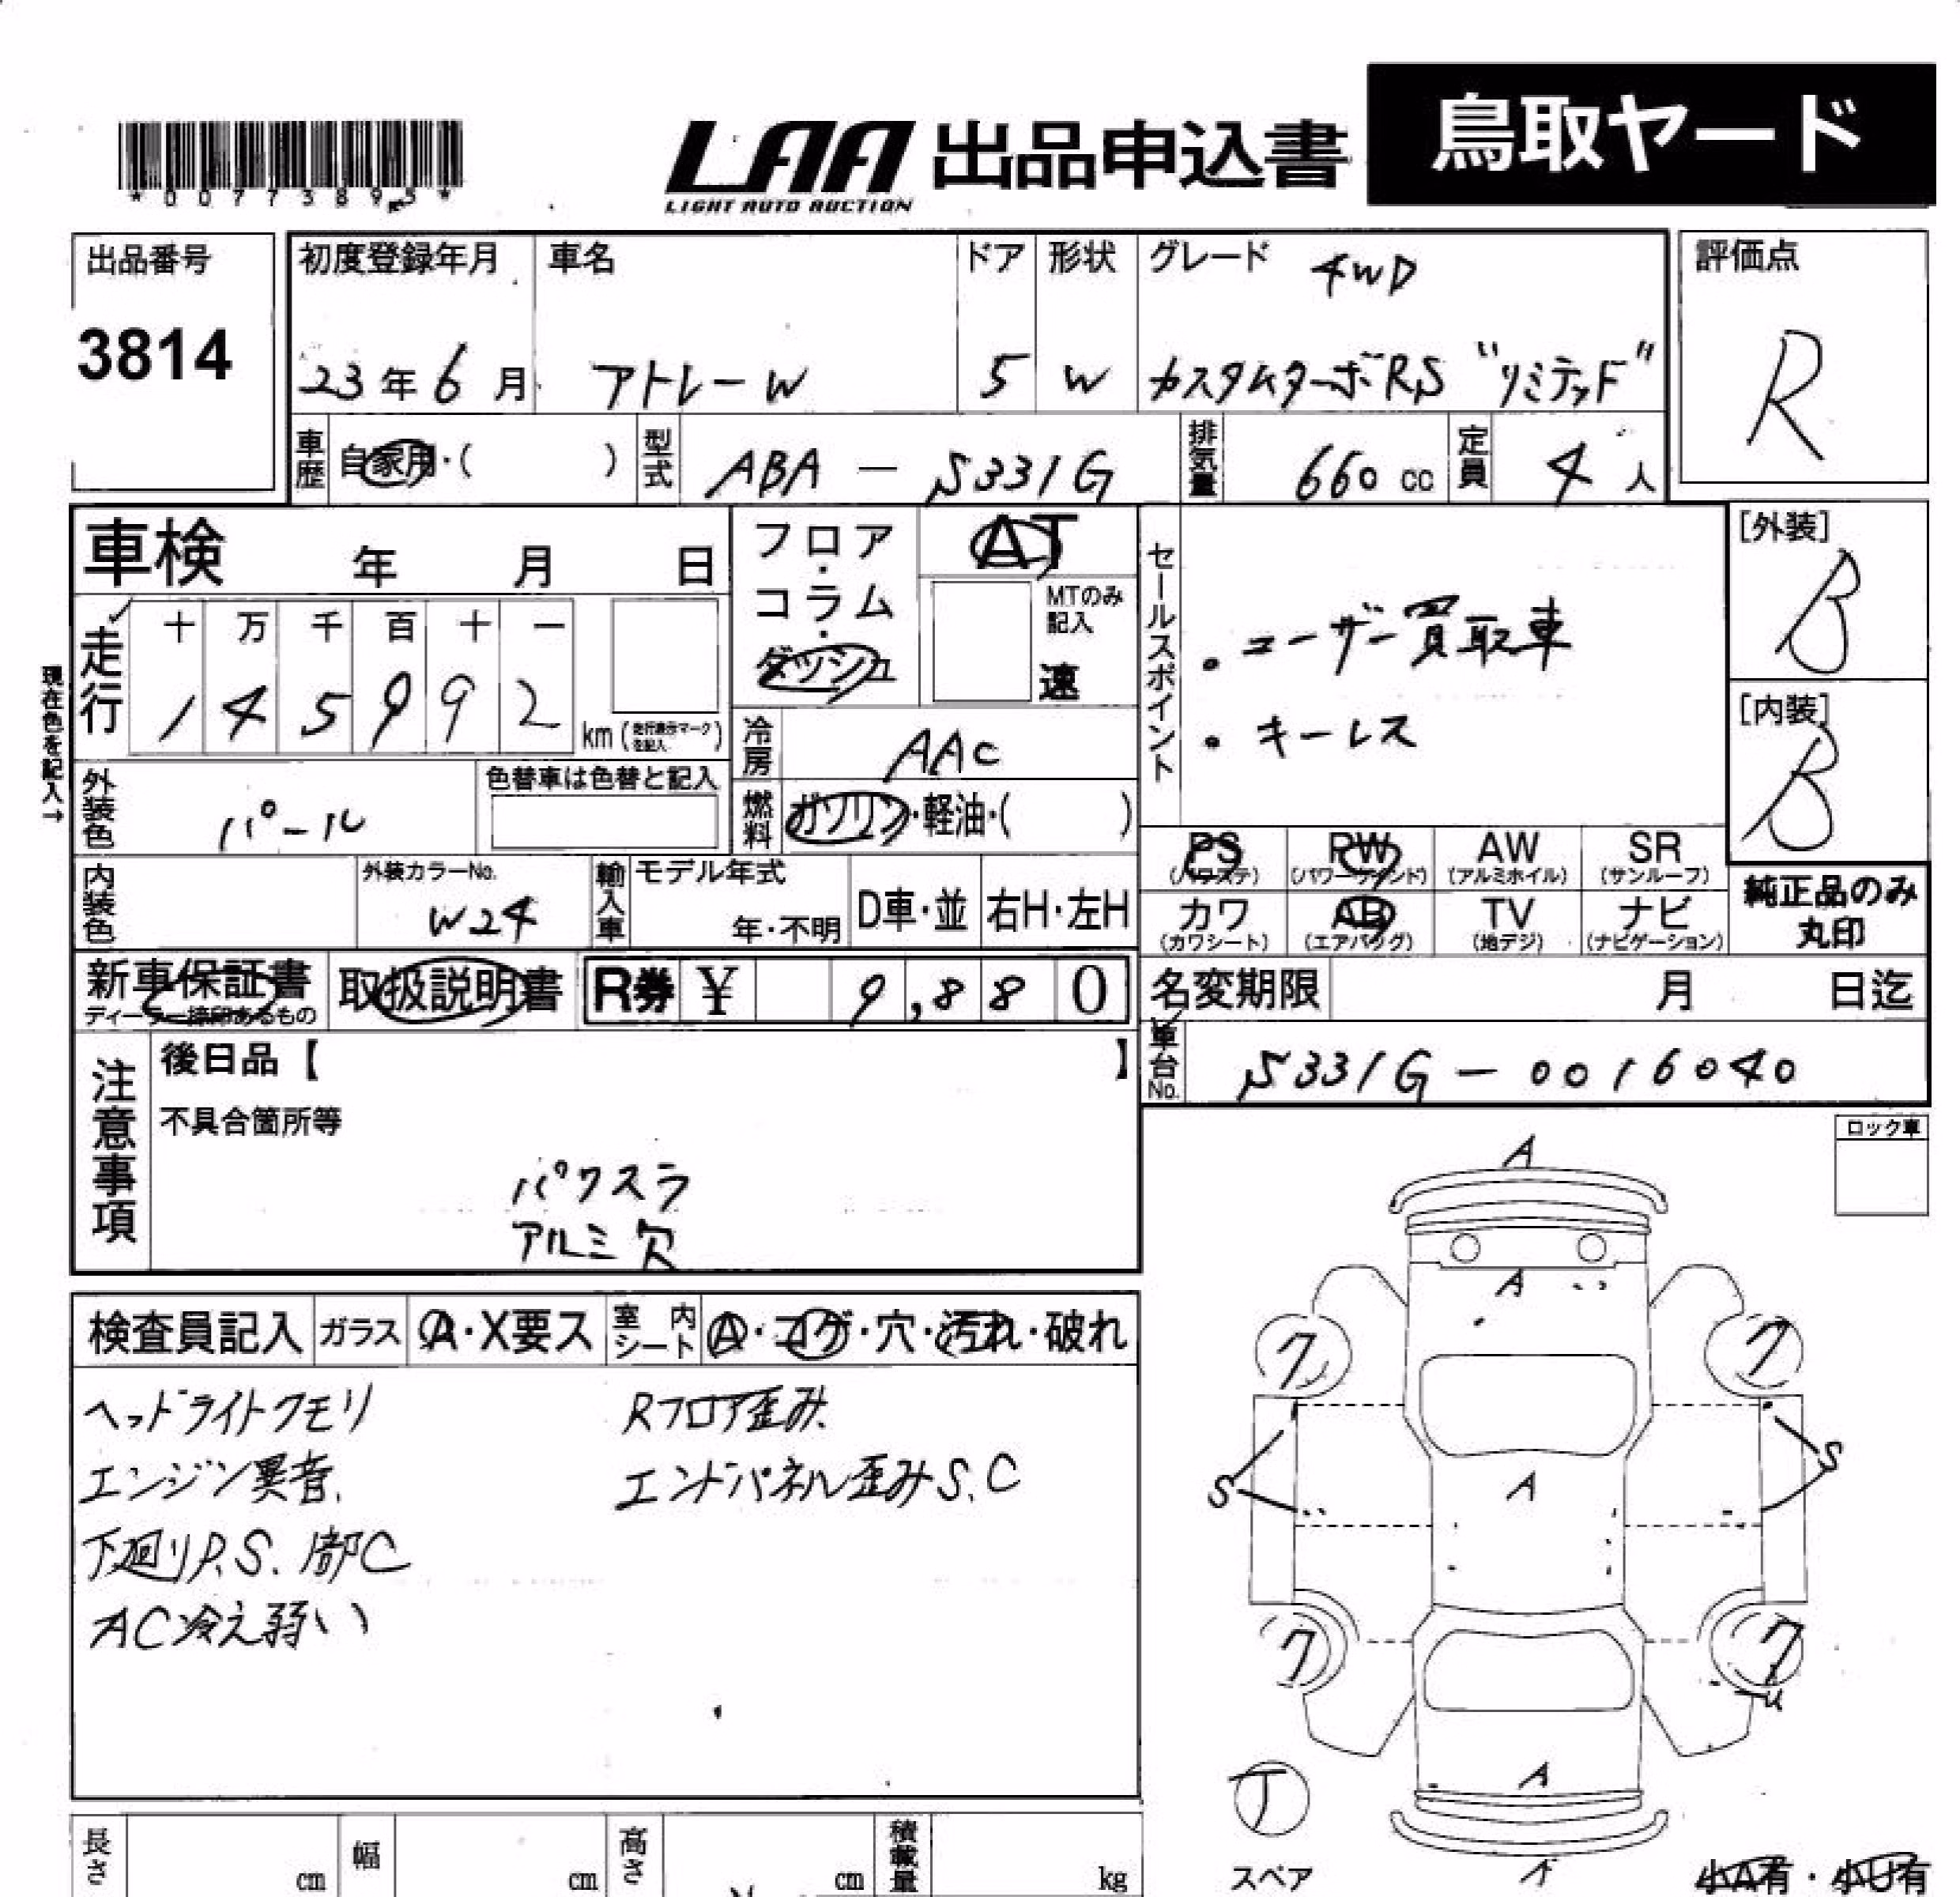 *00773895*
LAA 出品申込書 鳥取ヤード
LIGHT AUTO AUCTION
出品番号
3814
初度登録年月
23年6月
車名
アトレーW
ドア
5
形状
W
グレード 4WD
カスタムターボRS "リミテッド"
評価点
R
車歴 自家用・( )
型式 ABA-S331G
排気量 660cc
定員 4人
車検 年 月 日
走行
十万千百十一
145992
km(走行表示マークを記入)
現在色を記入→
フロア・コラム・ダッシュ
AT
MTのみ記入
速
冷房 AAC
燃料 ガソリン・軽油・( )
セールスポイント
・ユーザー買取車
・キーレス
[外装]
B
[内装]
B
外装色 パール
色替車は色替と記入
内装色
外装カラーNo.
W24
輸入車
モデル年式
年・不明
D車・並
右H・左H
PS
(パワステ)
PW
(パワーウィンド)
AW
(アルミホイル)
SR
(サンルーフ)
カワ
(カワシート)
AB
(エアバッグ)
TV
(地デジ)
ナビ
(ナビゲーション)
純正品のみ
丸印
新車保証書
ディーラー捺印あるもの
取扱説明書
R券 ¥ 9,880
名変期限 月 日迄
車台No. S331G-0016040
注意事項
後日品【 】
不具合箇所等
パワスラ
アルミ穴
ロック車
検査員記入
ガラス A・X要ス
室内シート A・コゲ・穴・汚れ・破れ
ヘッドライトクモリ
エンジン異音.
下廻りP.S.部C
AC冷え弱い
Rフロア歪み.
エンドパネル歪みS.C
A
A
ク
ク
S
S
A
ク
ク
U
A
丁
スペア
小A有・小U有
長さ cm
幅 cm
高さ cm
積載量 kg